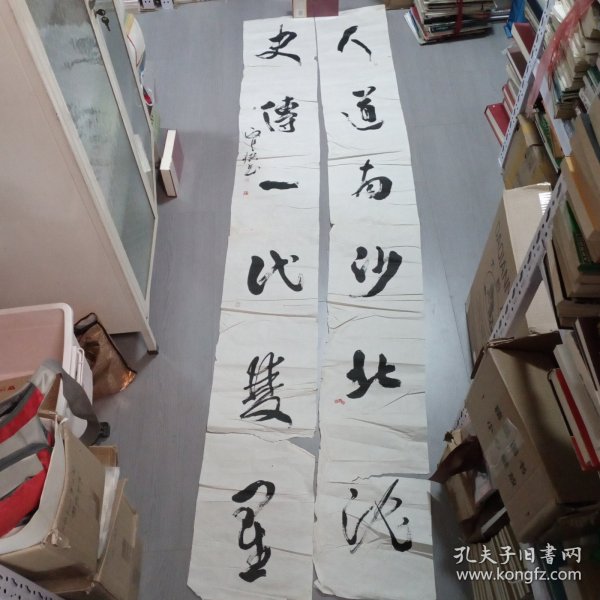 人道南沙北沈
史傳一代雙星
孔夫子旧书网
www.kongfz.com